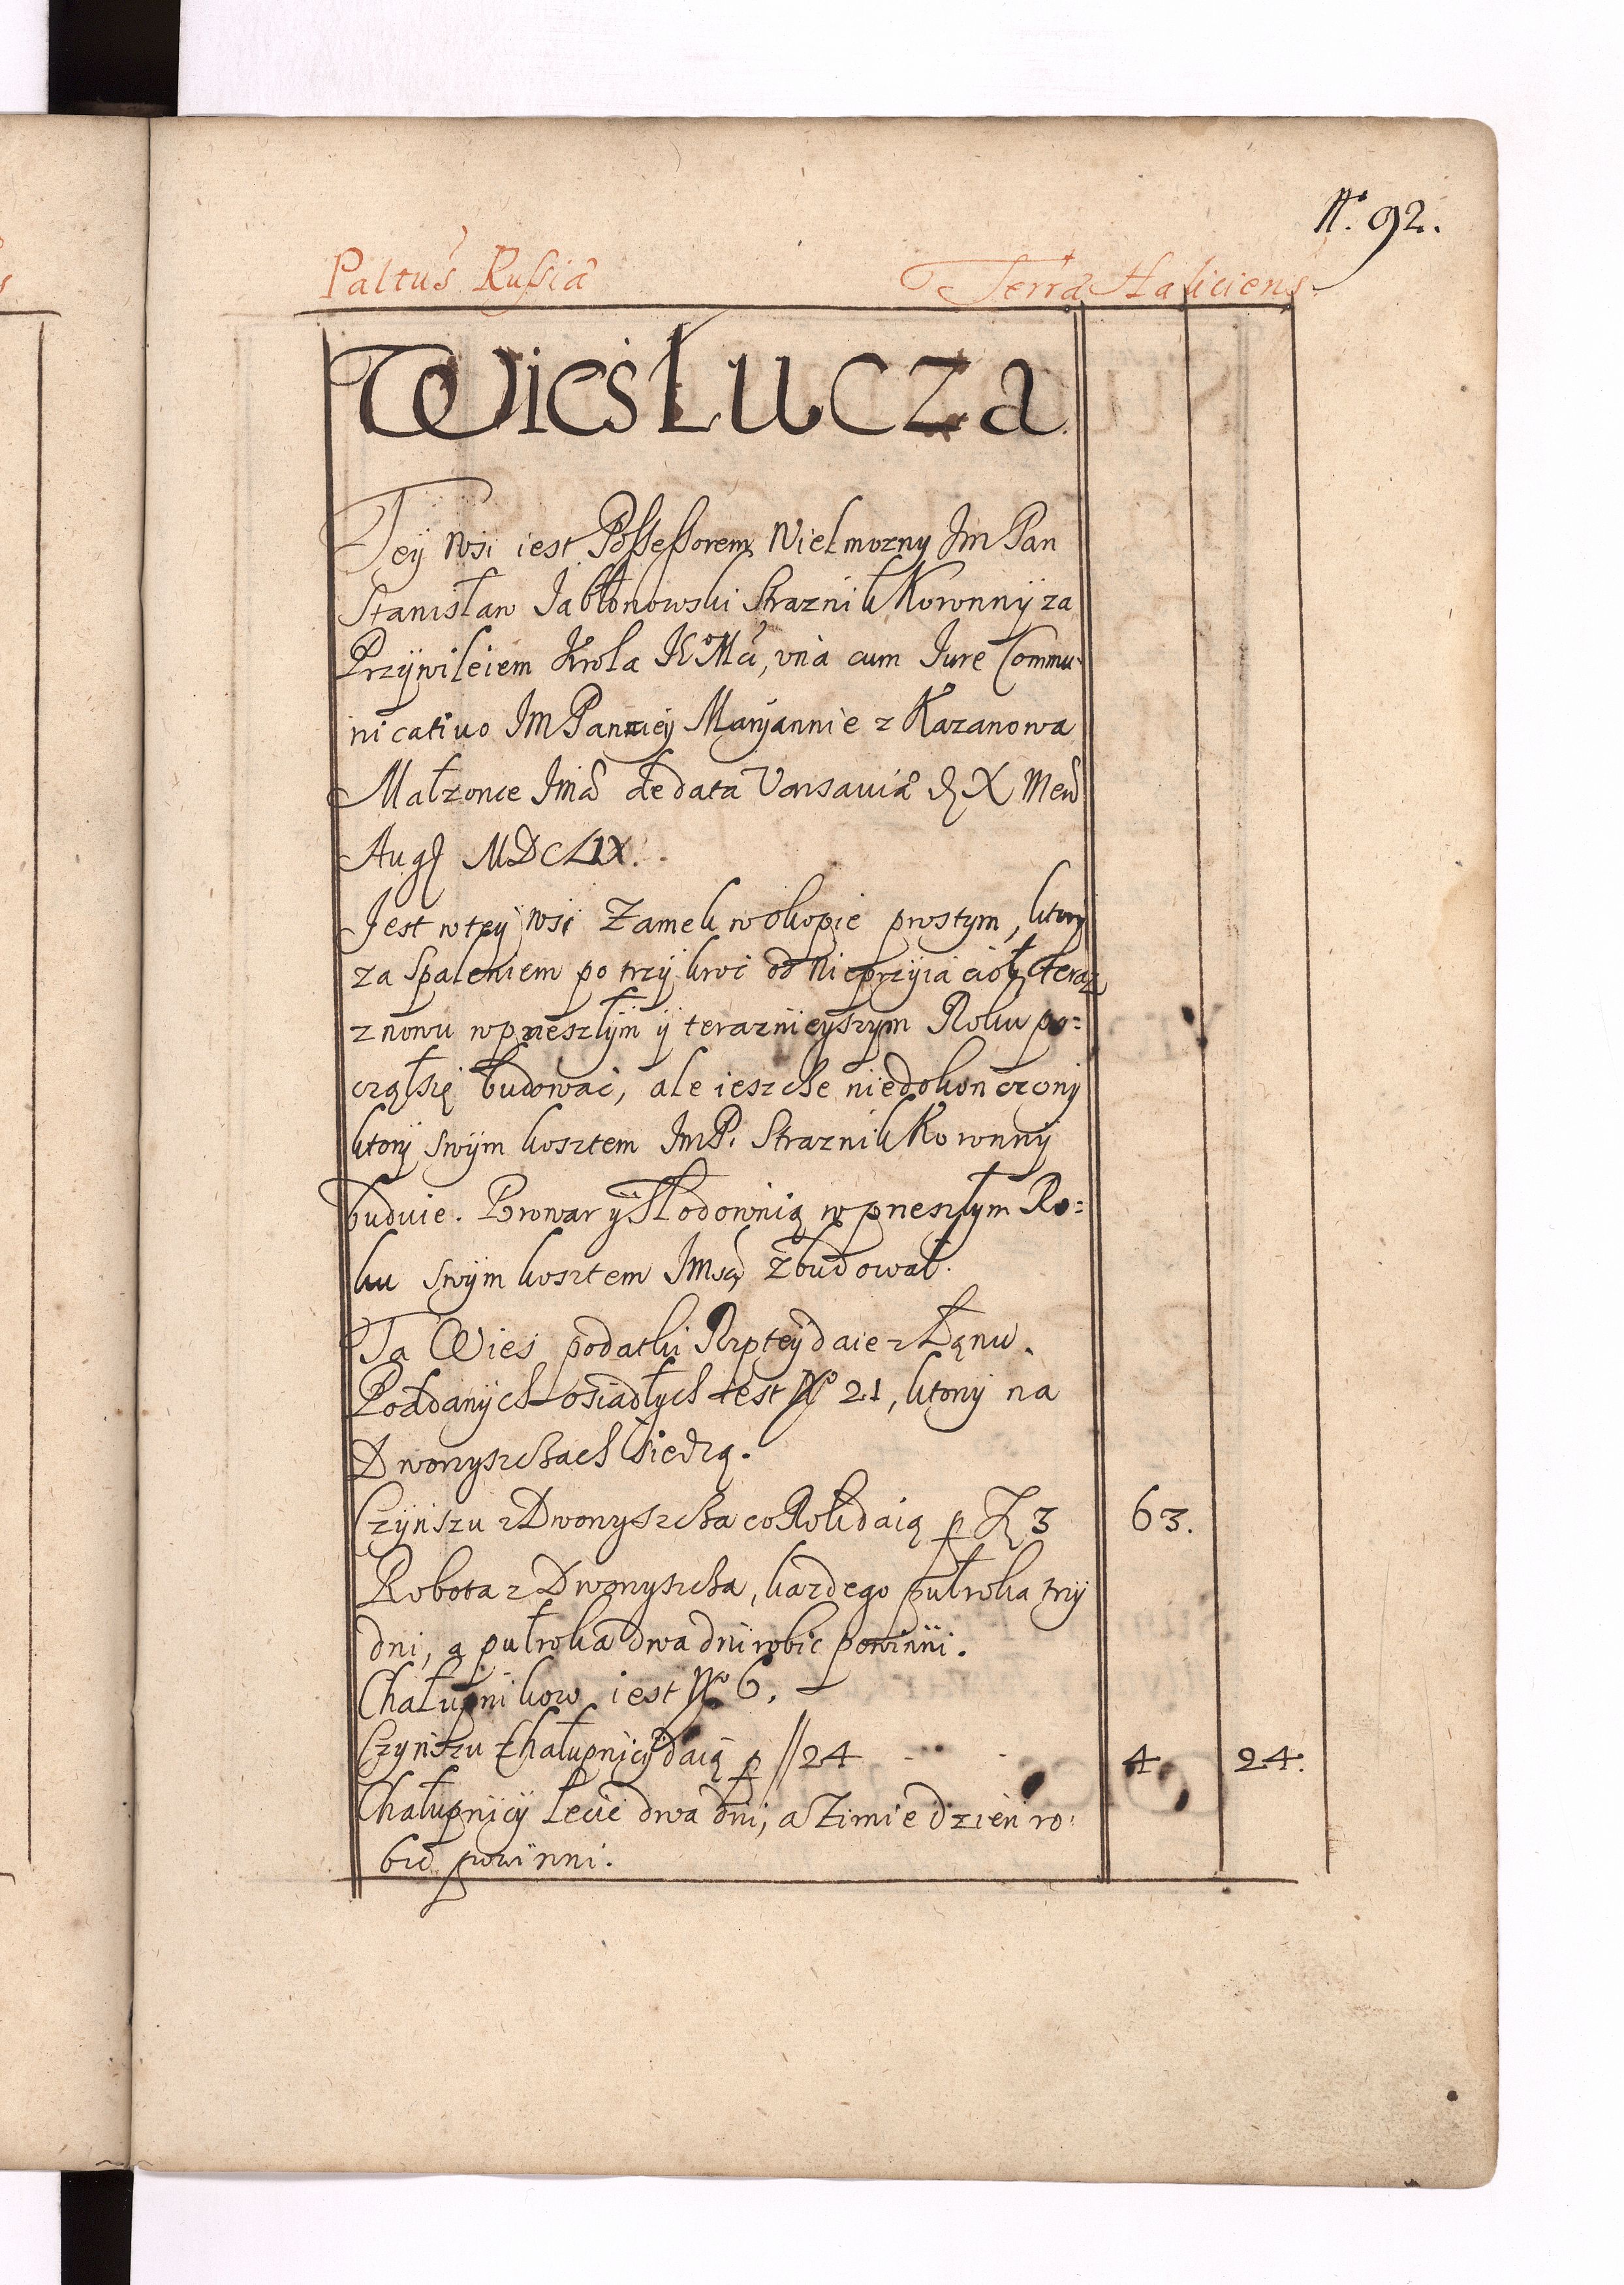 No. 92.
Paltus Rusiæ Terra Haliciens.
Wies Łucza
Tey Wsi iest Possessorem Wielmozny Jm Pan
Stanisław Jabłonowski Straznik Koronny za
Przywileiem Krola Kº Mci, una cum Iure Commu-
nicativo Im Panniey Maryannie z Kazanowa
Małzonce Jmci de data Varsaviæ X Mens
Augti MDCLIX.
Jest w tey Wsi Zamek w okopie prostym, ktory
za spaleniem po trzy kroc od Nieprzyiacioł, teraz
znowu w przeszłym y teraznieyszym Roku po=
cząłsię budowac, ale ieszcze niedokonczony
ktory swym kosztem Jm P. Straznik Koronny
buduie. Browar y Słodownią w przeszłym Ro=
ku swym kosztem Jmsc zbudował.
Ta Wies podatki Rzptey daie z Łanu.
Poddanych osiadłych iest No 21, ktory na
Dworzyszczach siedzą.
Czynszu z Dworzyszcza co Rok daią p Zł 3 63.
Robota z Dworzyszcza, kazdego puł roka trzy
dni, a puł roka dwa dni robic powinni.
Chałupnikow iest No 6.
Czynszu Chałupnicy daią p // 24 4. 24.
Chałupnicy Lecie dwa dni, a Zimie dzien ro-
bic powinni.